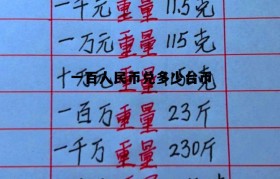 一千元重量 11.5克
一万元重量 115克
十
一百人民币兑多少台币
克
一百万重量 23斤
一千万重量 230斤